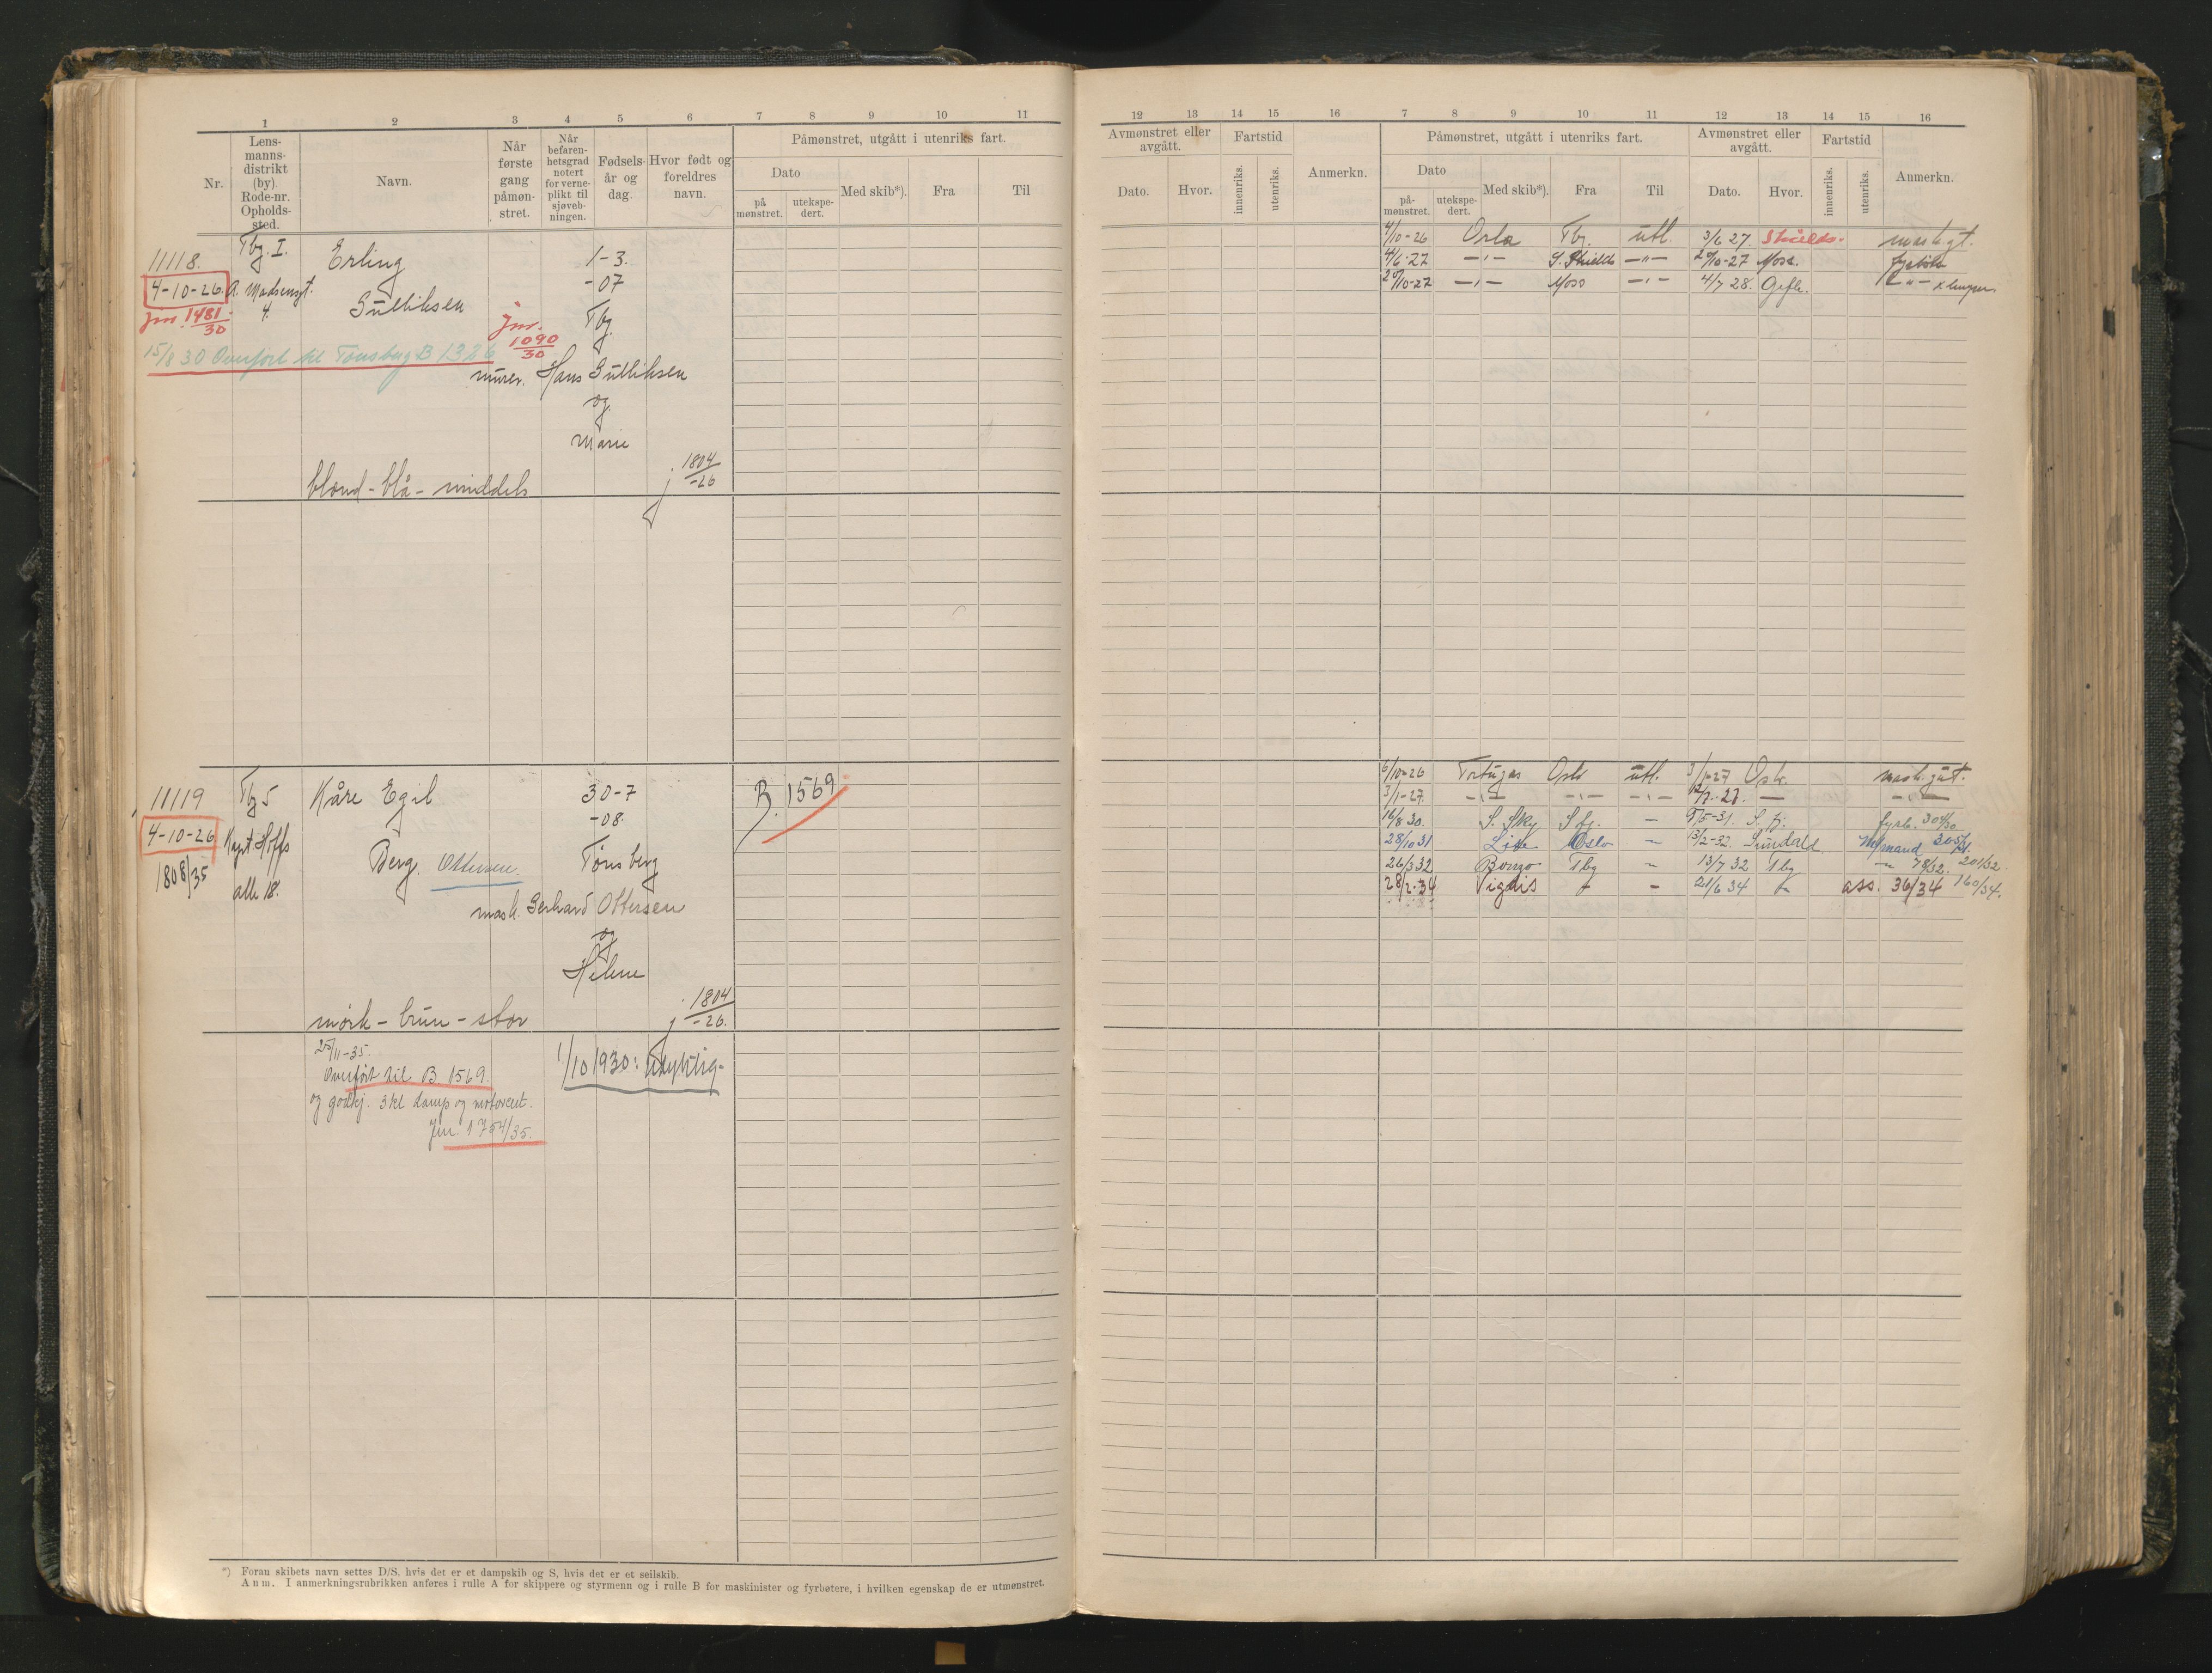 1 2 3 4 5 6 7 8 9 10 11
Nr.
Lens-
manns-
distrikt
(by)
Rode-nr.
Opholds-
sted.
Navn.
Når
første
gang
påmøn-
stret.
Når
befaren-
hetsgrad
notert
for verne-
plikt til
sjøveb-
ningen.
Fødsels-
år og
dag.
Hvor født og
foreldres
navn.
Påmønstret, utgått i utenriks fart.
Dato
på
mønstret.
utekspe-
dert.
Med skib*).
Fra
Til
11118.
4-10-26.
Jnr. 1481/30
Tbg. I.
A. Madsensgt.
4.
Erling
Gulliksen
1-3.
-07
Tbg.
Jnr.
1090/30
15/8 30 Overført til Tønsberg B 1326
murer. Hans Gulliksen
og
Marie
blond - blå - middels
j 1804/-26
11119
4-10-26
1808/35
Tbg 5
Kapt. Hoffs
alle 18.
Kåre Egil
Berg. Ottersen.
30-7
-08.
Tønsberg
mask. Gerhard Ottersen
og
Helene
mørk - brun - stor
j 1804/-26.
B. 1569
25/11-35.
Overført til B 1569.
og godkj. 3kl damp og motorcert.
Jnr. 1754/35.
1/10 1930: Udyktig.
*) Foran skibets navn settes D/S, hvis det er et dampskib og S, hvis det er et seilskib.
Anm. I anmerkningsrubrikken anføres i rulle A for skippere og styrmenn og i rulle B for maskinister og fyrbøtere, i hvilken egenskap de er utmønstret.
12 13 14 15 16 7 8 9 10 11 12 13 14 15 16
Avmønstret eller
avgått.
Dato.
Hvor.
Fartstid
innenriks.
utenriks.
Anmerkn.
Påmønstret, utgått i utenriks fart.
Dato
på-
mønstret.
utekspe-
dert.
Med skib*).
Fra
Til
Avmønstret eller
avgått.
Dato.
Hvor.
Fartstid
innenriks.
utenriks.
Anmerkn.
4/10-26 Orla Tbg. utl. 3/6 27. Shields. mask.gt.
4/6-27 -"- S. Shields -"- 20/10-27 Moss.
20/10-27 -"- Moss -"- 4/7 28. Gefle. -"- x lemper
6/10-26 Tortugas Oslo utl. 3/1-27 Oslo. mask.gut.
3/1-27. -"- -"- -"- 12/7.-27. — -"-
16/8 30. S. Sky S fj. - 9/5-31. S. fj. fyrb.
28/10 31 Oslo - 13/2-32. Sunderld.
26/3 32 Borgo Tbg - 13/7 32 Tbg -"- 78/32. 201/32.
28/2-34 Vigdis - 21/6 34 ass. 36/34 160/34.